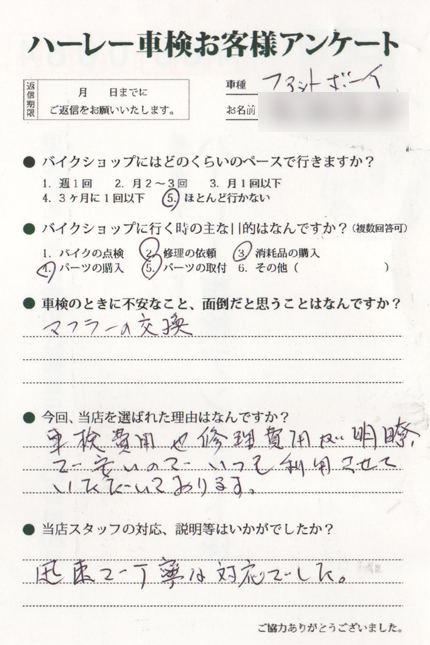 ハーレー車検お客様アンケート
返信期限
月　日までに
ご返信をお願いいたします。
車種 ファットボーイ
お名前
● バイクショップにはどのくらいのペースで行きますか？
1. 週1回　2. 月2～3回　3. 月1回以下
4. 3ヶ月に1回以下　5. ほとんど行かない
● バイクショップに行く時の主な目的はなんですか？(複数回答可)
1. バイクの点検　2. 修理の依頼　3. 消耗品の購入
4. パーツの購入　5. パーツの取付　6. その他（　　　）
● 車検のときに不安なこと、面倒だと思うことはなんですか？
マフラーの交換
● 今回、当店を選ばれた理由はなんですか？
車検費用や修理費用が明瞭
で安いのでいつも利用させて
いただいております。
● 当店スタッフの対応、説明等はいかがでしたか？
迅速で丁寧な対応でした。
ご協力ありがとうございました。